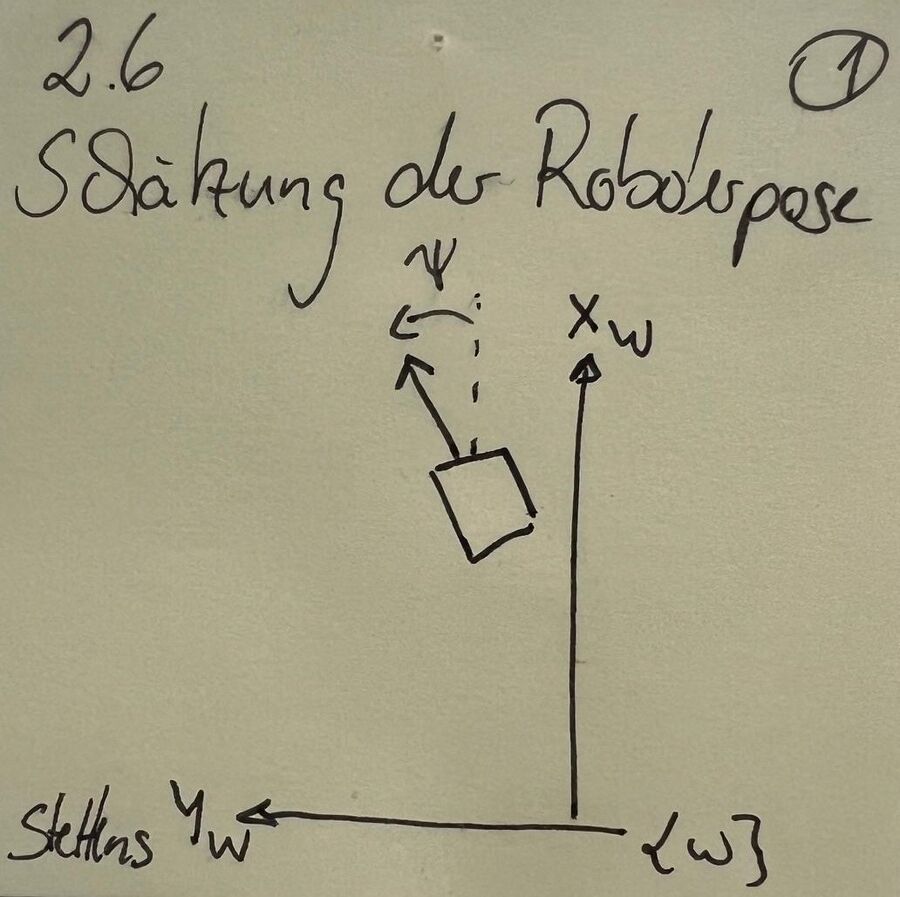 2.6
1
Schätzung der Roboterpose
ψ
X_W
Y_W
{W}